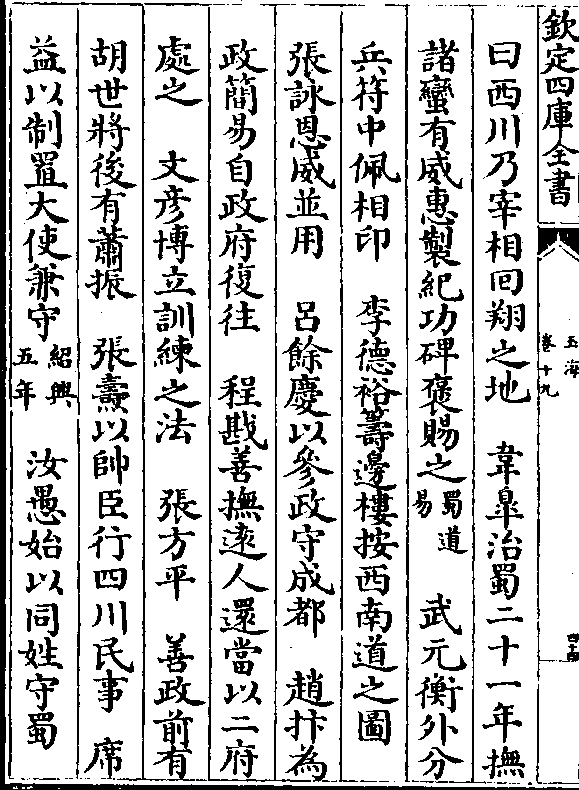 欽定四庫全書
玉海
卷十九
曰西川乃宰相回翔之地　韋臯治蜀二十一年撫
諸蠻有威惠製紀功碑襃賜之蜀道易　武元衡外分
兵符中佩相印　李德裕籌邊樓按西南道之圖
張詠恩威並用　呂餘慶以參政守成都　趙抃為
政簡易自政府復往　程戡善撫逺人還當以二府
處之　文彦博立訓練之法　張方平　善政前有
胡世將後有蕭振　張燾以帥臣行四川民事　席
益以制置大使兼守紹興五年　汝愚始以同姓守蜀